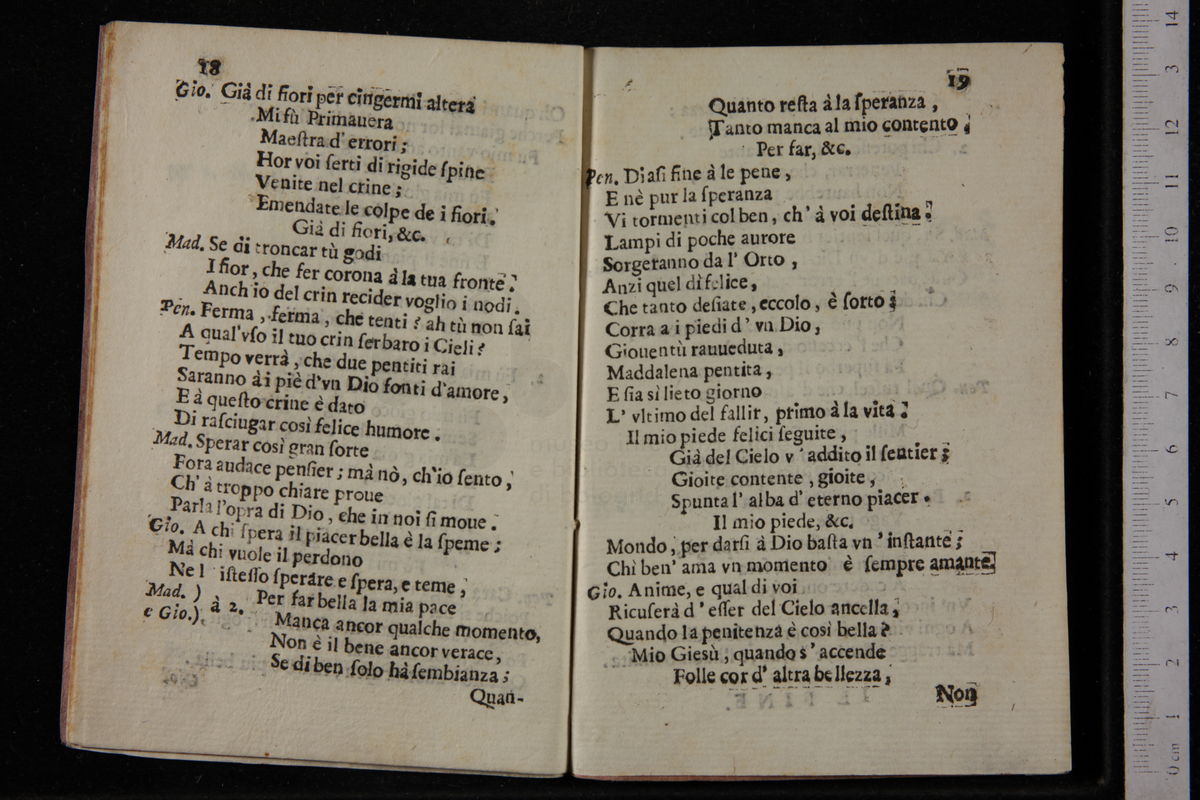 18
Gio. Già di fiori per cingermi altera
Mi fù Primauera
Maeſtra d' errori ;
Hor voi ſerti di rigide ſpine
Venite nel crine ;
Emendate le colpe de i fiori.
Già di fiori, &c.
Mad. Se di troncar tù godi
I fior, che fer corona à la tua fronte :
Anch io del crin recider voglio i nodi.
Pen. Ferma, ferma, che tenti ? ah tù non ſai
A qual' vſo il tuo crin ſerbaro i Cieli ?
Tempo verrà, che due pentiti rai
Saranno à i piè d'vn Dio fonti d'amore,
E à queſto crine è dato
Di raſciugar così felice humore.
Mad. Sperar così gran ſorte
Fora audace penſier ; mà nò, ch'io ſento,
Ch' à troppo chiare proue
Parla l'opra di Dio, che in noi ſi moue.
Gio. A chi ſpera il piacer bella è la ſpeme ;
Mà chi vuole il perdono
Nel iſteſſo ſperare e ſpera, e teme,
Mad. ) à 2. Per far bella la mia pace
e Gio.) Manca ancor qualche momento,
Non è il bene ancor verace,
Se di ben ſolo hà ſembianza ;
Quan-
19
Quanto reſta à la ſperanza ,
Tanto manca al mio contento .
Per far, &c.
Pen. Diaſi fine à le pene ,
E nè pur la ſperanza
Vi tormenti col ben, ch' à voi deſtina :
Lampi di poche aurore
Sorgeranno da l' Orto ,
Anzi quel dì felice,
Che tanto deſiate, eccolo, è ſorto ;
Corra a i piedi d' vn Dio,
Giouentù rauueduta ,
Maddalena pentita ,
E ſia sì lieto giorno
L' vltimo del fallir, primo à la vita :
Il mio piede felici ſeguite ,
Già del Cielo v' addito il ſentier ;
Gioite contente , gioite ,
Spunta l' alba d' eterno piacer .
Il mio piede, &c.
Mondo, per darſi à Dio baſta vn' inſtante ;
Chì ben' ama vn momento è ſempre amante.
Gio. Anime, e qual di voi
Ricuſerà d' eſſer del Cielo ancella ,
Quando la penitenza è così bella ?
Mio Giesù , quando s' accende
Folle cor d' altra bellezza ,
Non